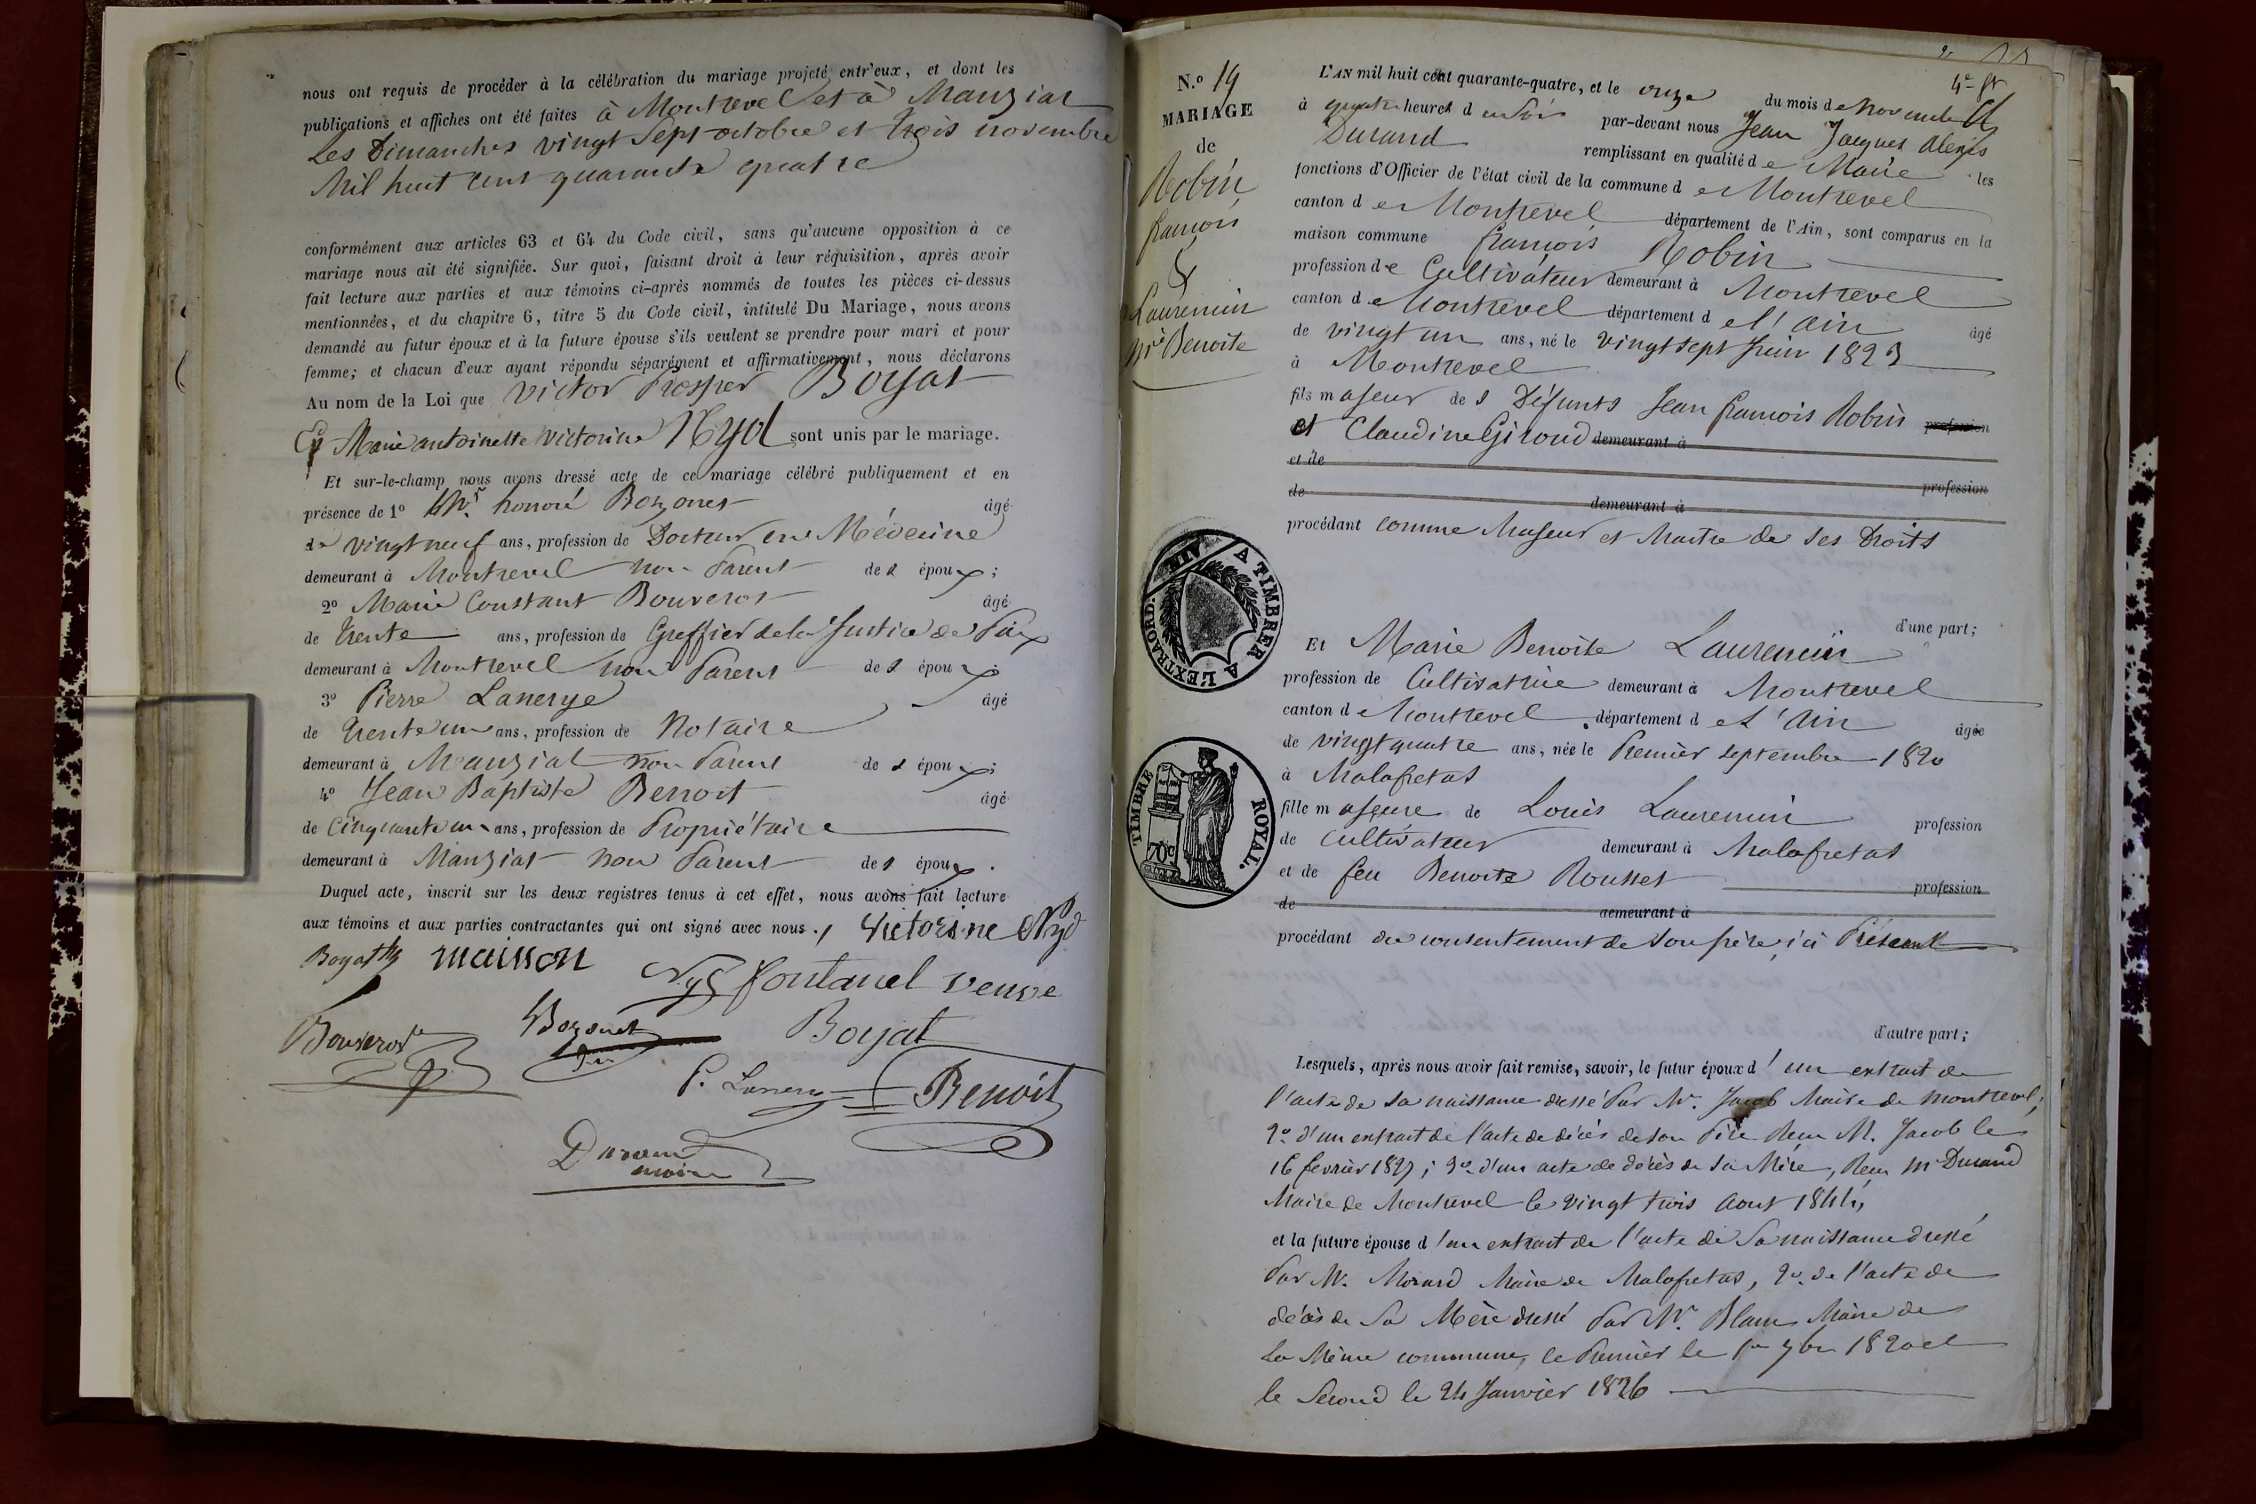 nous ont requis de procéder à la célébration du mariage projeté entr'eux, et dont les
publications et affiches ont été faites à Montrevel et à Manziat
Les Dimanches vingt Sept octobre et trois novembre
Mil huit cent quarante quatre
conformément aux articles 63 et 64 du Code civil, sans qu'aucune opposition à ce
mariage nous ait été signifiée. Sur quoi, faisant droit à leur réquisition, après avoir
fait lecture aux parties et aux témoins ci-après nommés de toutes les pièces ci-dessus
mentionnées, et du chapitre 6, titre 5 du Code civil, intitulé Du Mariage, nous avons
demandé au futur époux et à la future épouse s'ils veulent se prendre pour mari et pour
femme; et chacun d'eux ayant répondu séparément et affirmativement, nous déclarons
Au nom de la Loi que Victor Prosper Boyat
Et Marie antoinette Victorine Nyd sont unis par le mariage.
Et sur-le-champ nous avons dressé acte de ce mariage célébré publiquement et en
présence de 1º honoré Bozonet âgé
de vingt neuf ans, profession de Docteur en Médecine
demeurant à Montrevel non Parent des époux;
2º Marie Constant Bouverot âgé
de trente ans, profession de Greffier de la Justice de Paix
demeurant à Montrevel non Parent des époux;
3º Pierre Lanerye âgé
de trente un ans, profession de Notaire
demeurant à Manziat non Parent des époux;
4º Jean Baptiste Benoit âgé
de Cinquante un ans, profession de Propriétaire
demeurant à Manziat non Parent des époux.
Duquel acte, inscrit sur les deux registres tenus à cet effet, nous avons fait lecture
aux témoins et aux parties contractantes qui ont signé avec nous. Victorine Nyd
Boyat maisson Nyd fontanel veuve
Bouverot Bozonet Boyat
P. Lanery Benoit
Durand
maire
N.º 19
MARIAGE
de
Robin
francois
&
Lauremin
Mie Benoite
4e fr
L'AN mil huit cent quarante-quatre, et le onze du mois de novembre
à quatre heures d u Soir par-devant nous Jean Jacques Alexis
Durand remplissant en qualité de Maire les
fonctions d'Officier de l'état civil de la commune d e Montrevel
canton d e Montrevel département de l'Ain, sont comparus en la
maison commune francois Robin
profession de Cultivateur demeurant à Montrevel
canton d e Montrevel département d e l'ain âgé
de vingt un ans, né le vingt sept Juin 1823
à Montrevel
fils majeur des Défunts Jean francois Robin profession
et Claudine Giroud demeurant à
et de
de demeurant à profession
procédant comme Majeur et Maitre de ses Droits
d'une part;
Et Marie Benoite Lauremin
profession de Cultivatrice demeurant à Montrevel
canton d e Montrevel département d e l'ain âgée
de vingt quatre ans, née le Premier septembre 1820
à Malafretas
fille majeure de Louis Lauremin profession
de Cultivateur demeurant à Malafretas
et de feu Benoite Rousset profession
de demeurant à
procédant du consentement de son père, ici Présent
d'autre part;
Lesquels, après nous avoir fait remise, savoir, le futur époux d'un extrait de
l'acte de sa naissance dressé Par Mr. Jacob Maire de Montrevel,
2º d'un extrait de l'acte de décès de son Père Reçu M. Jacob le
16 fevrier 1827; 3º d'un acte de décès de sa Mère, Reçu Mr Durand
Maire de Montrevel le vingt trois Aout 1844,
et la future épouse d'un extrait de l'acte de sa naissance dressé
Par Mr. Morard Maire de Malafretas, 2º de l'acte de
décès de sa Mère dressé Par Mr. Blanc Maire de
La Même commune, le Premier le 1er 7bre 1820 et
le Second le 24 Janvier 1826
A TIMBRER A L'EXTRAORD.
AIN
TIMBRE ROYAL.
70c